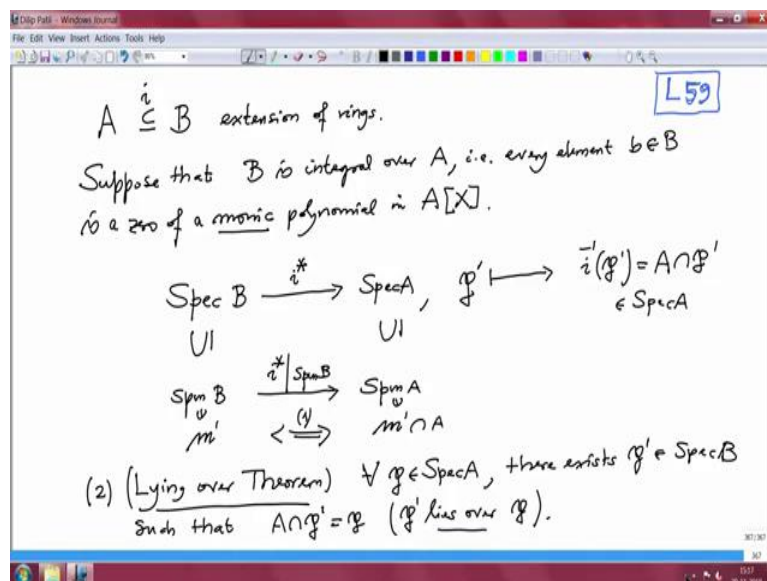 Dilip Patil - Windows Journal
File Edit View Insert Actions Tools Help
L59
A ⊆ B extension of rings.
i
Suppose that B is integral over A, i.e. every element b∈B
is a zero of a monic polynomial in A[X].
Spec B —i*→ Spec A, 𝔭' ⟼ i⁻¹(𝔭') = A∩𝔭'
∈ Spec A
∪| ∪|
Spm B —i*|Spm B→ Spm A
𝔪' <=(1)=> 𝔪'∩A
(2) (Lying over Theorem) ∀ 𝔭∈Spec A, there exists 𝔭'∈ Spec B
Such that A∩𝔭' = 𝔭 (𝔭' lies over 𝔭).
367/367
367
15:17